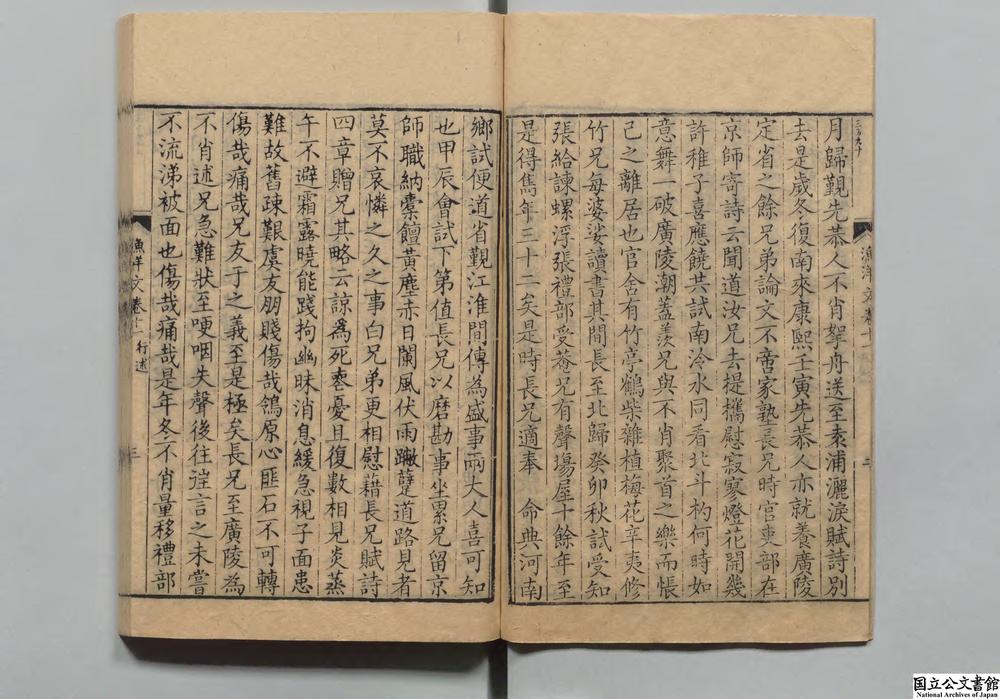 月歸覲先恭人不肖拏舟送至袁浦灑淚賦詩別
去是歲冬復南來康熙壬寅先恭人亦就養廣陵
定省之餘兄弟論文不啻家塾長兄時官吏部在
京師寄詩云聞道汝兄去提攜慰寂寥燈花開幾
許稚子喜應饒共試南泠水同看北斗杓何時如
意舞一破廣陵潮蓋羨兄與不肖聚首之樂而悵
己之離居也官舍有竹亭鶴柴雜植梅花辛夷修
竹兄每婆娑讀書其間長至北歸癸卯秋試受知
張給諫螺浮張禮部受菴兄有聲場屋十餘年至
是得雋年三十二矣是時長兄適奉　命典河南
鄉試便道省覲江淮間傳為盛事兩大人喜可知
也甲辰會試下第值長兄以磨勘事坐累兄留京
師職納橐饘黃塵赤日闌風伏雨蹩躠道路見者
莫不哀憐之久之事白兄弟更相慰藉長兄賦詩
四章贈兄其略云諒為死喪憂且復數相見炎蒸
午不避霜露曉能踐拘幽昧消息緩急視子面患
難故舊疎艱虞友朋賤傷哉鴒原心匪石不可轉
傷哉痛哉兄友于之義至是極矣長兄至廣陵為
不肖述兄急難狀至哽咽失聲後往往言之未嘗
不流涕被面也傷哉痛哉是年冬不肖量移禮部
漁洋文卷十一 行述
三
国立公文書館
National Archives of Japan